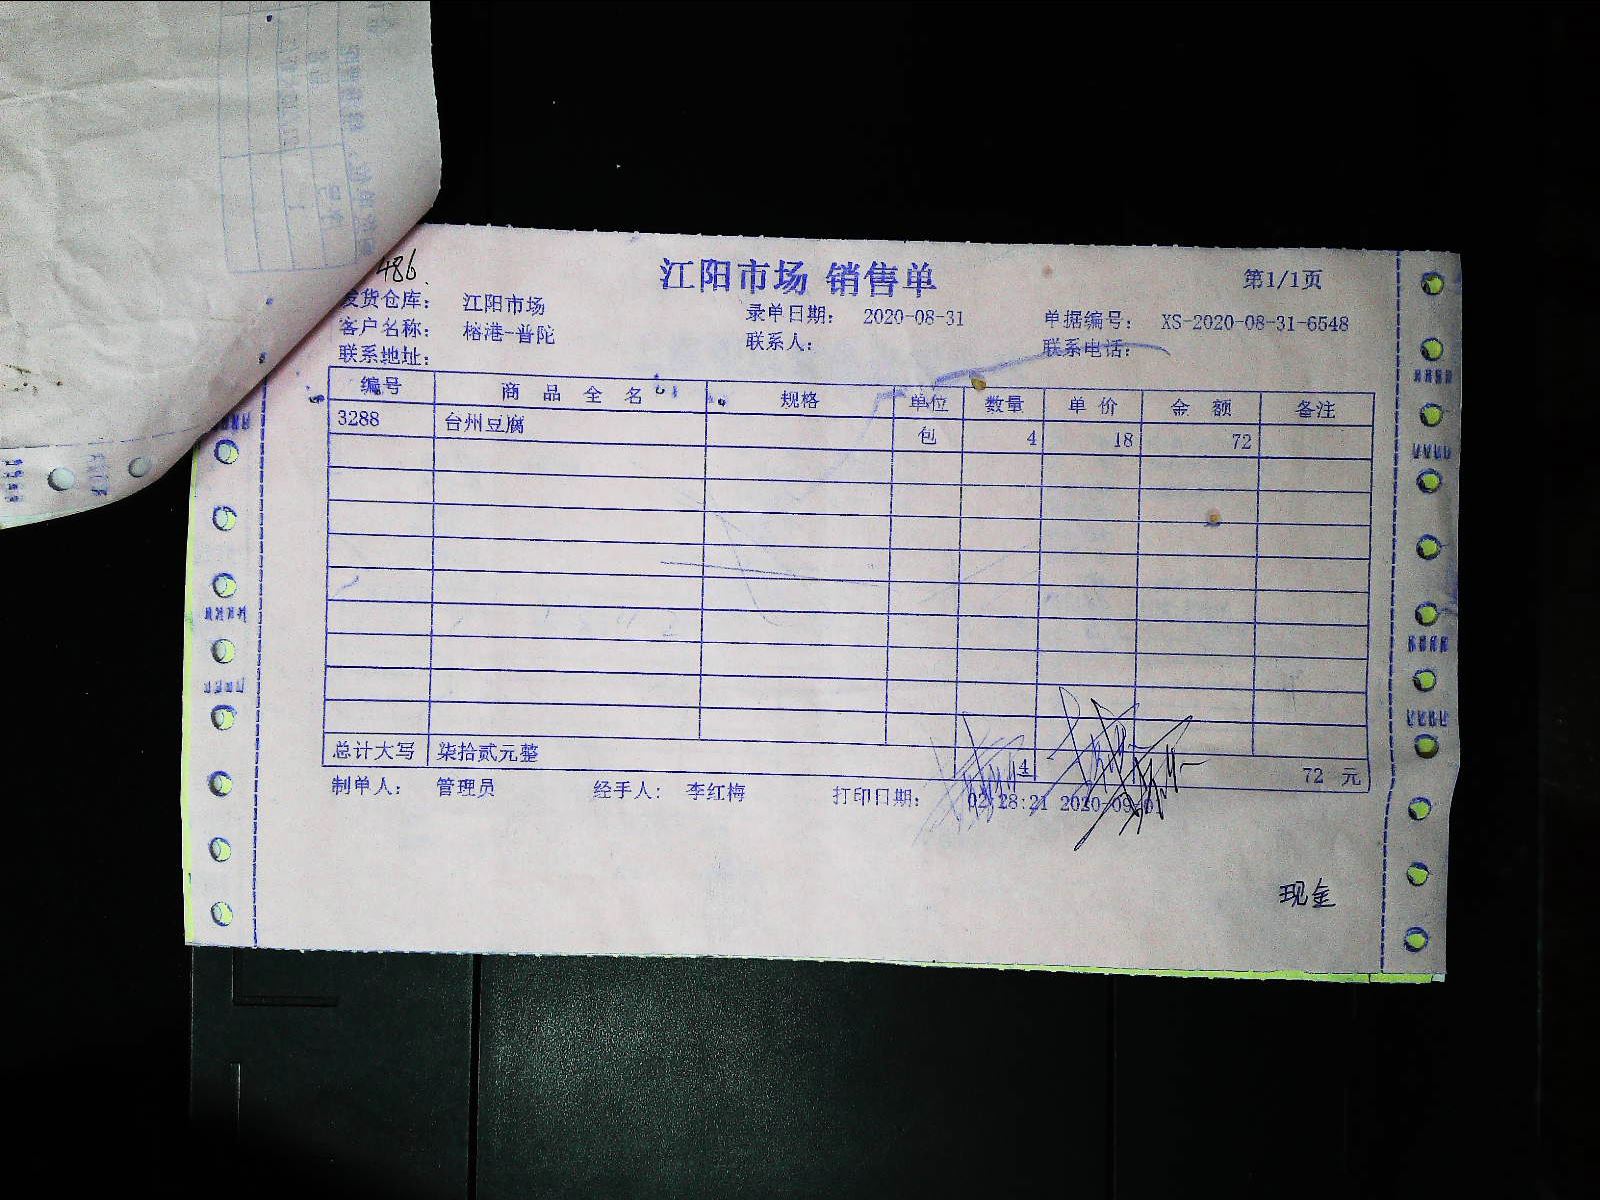 486
江阳市场 销售单
第1/1页
发货仓库： 江阳市场 录单日期： 2020-08-31 单据编号： XS-2020-08-31-6548
客户名称： 榕港-普陀 联系人： 联系电话：
联系地址：
编号 商 品 全 名 规格 单位 数量 单 价 金 额 备注
3288 台州豆腐 包 4 18 72
总计大写 柒拾贰元整 4 72 元
制单人： 管理员 经手人： 李红梅 打印日期： 02:28:21 2020-09-01
现金